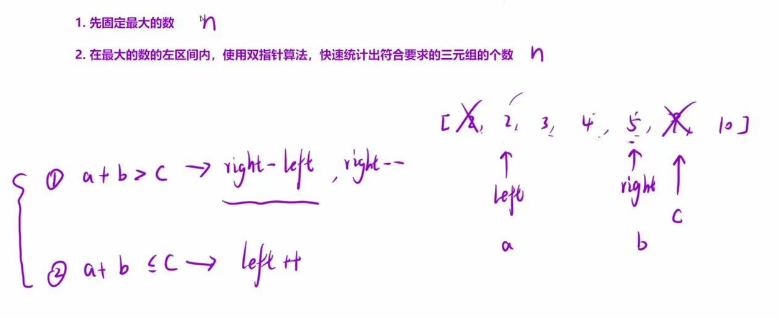 1. 先固定最大的数 n
2. 在最大的数的左区间内，使用双指针算法，快速统计出符合要求的三元组的个数 n
[2, 2, 3, 4, 5, 9, 10]
① a+b>c → right-left, right--
left right c
a b
② a+b≤c → left++